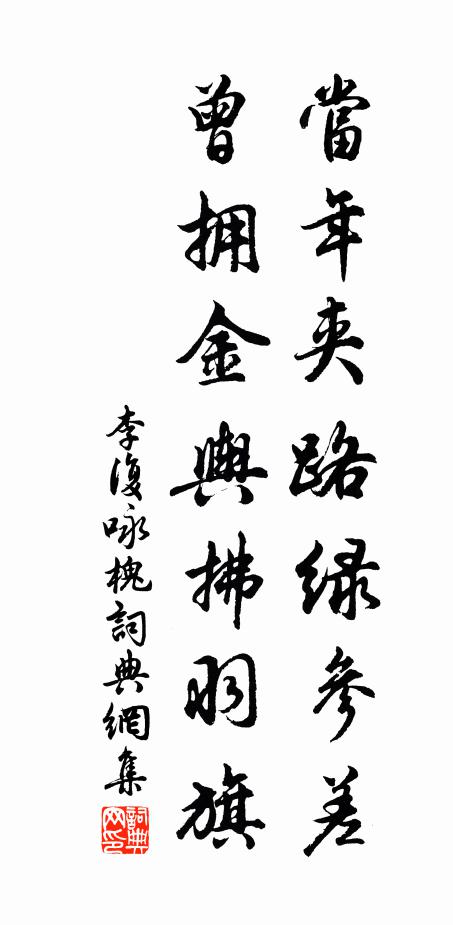 當年夹路緑參差
曾拥金輿拂羽旗
李復咏槐詞典網集
詞典网印